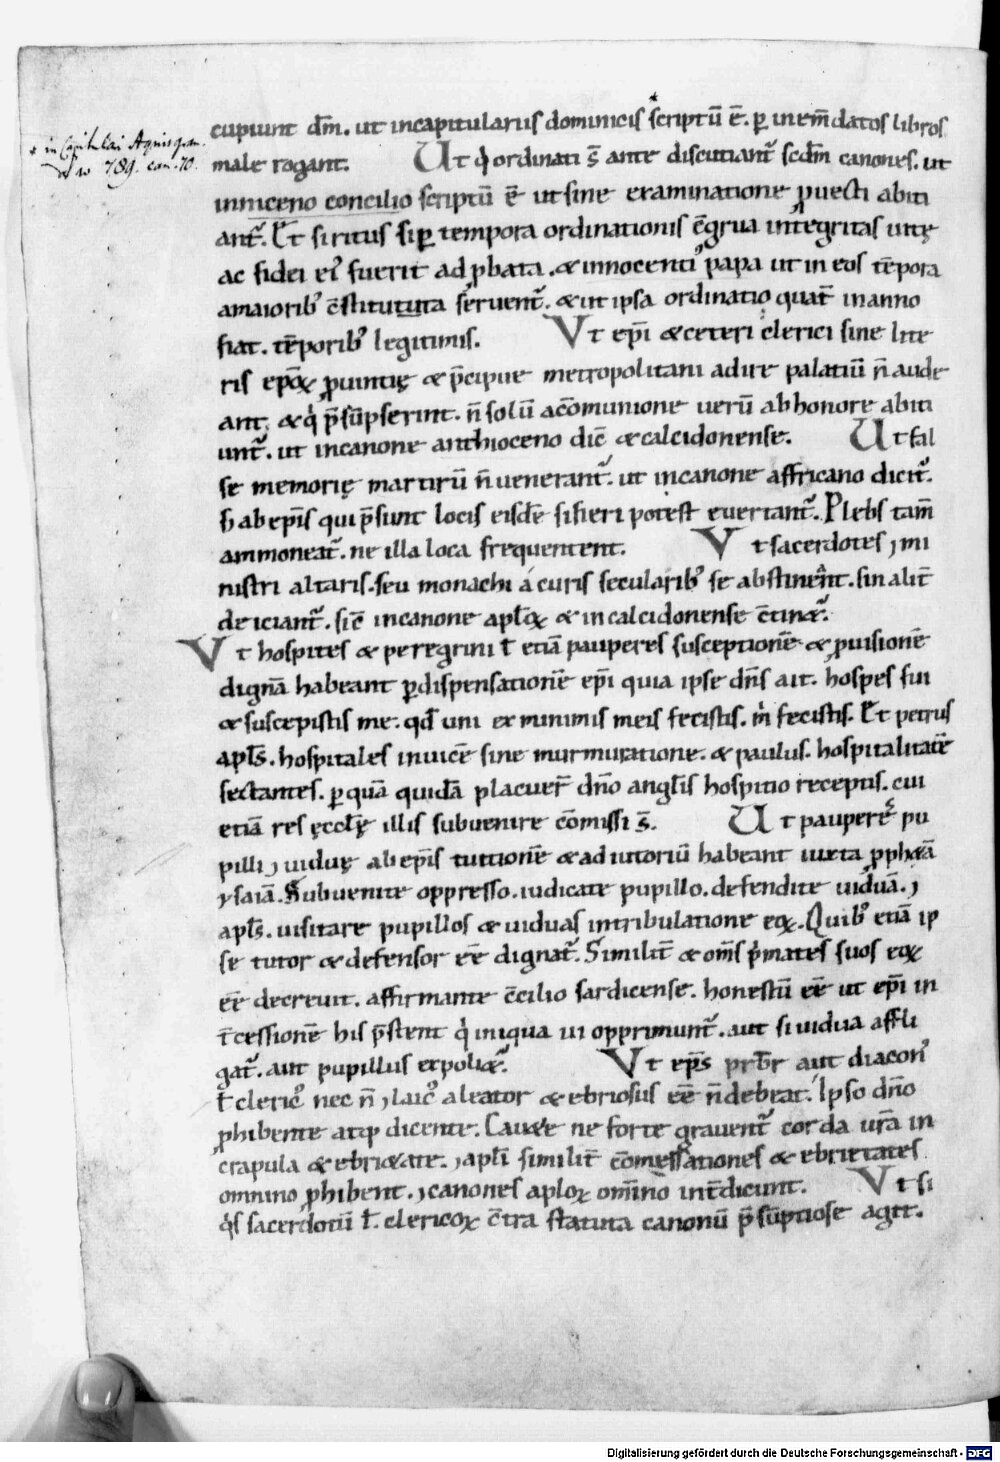 cupiunt dm̄. ut incapitulariis dominicis scriptū ē. ꝑ inem̄datos libros
+ in Capitulari Aquisgran.
male rogant. Ut qͥ ordinati s̄ ante discutiant᷑ scdm̄ canones. ut
789. can. 70.
inniceno concilio scriptū ē ut sine examinatione ꝓuecti abiti
ant᷑. Et si ritus sīꝑ tempora ordinationis c̄grua integritas uitę
ac fidei ei᷒ fuerit ad ꝓbata. & innocenti᷒ papa ut in eos tēpora
amaiorib᷒ c̄stitututa seruent᷑. & ut ipsa ordinatio quat̄ inanno
fiat. tēporib᷒ legitimis. Ut ep̄i & ceteri clerici sine lite
ris ep̄oꝝ ꝓuintię & p̄cipue metropolitani adire palatiū n̄ aude
ant. & qͥ p̄sūpserint. n̄ solū acōmunione uerū ab honore abiti
unt᷑. ut incanone anthioceno dic̄ & calcidonense. Ut fal
se memorię martirū n̄ uenerant᷑. ut incanone affricano dicit᷑.
h̄ ab ep̄is qui p̄sunt locis eisdē si fieri potest euertant᷑. Plebs tam̄
ammoneat᷑. ne illa loca frequentent. Ut sacerdotes ⁊ mi
nistri altaris. seu monachi á curis secularib᷒ se abstineant. sin alit̄
deiciant᷑. sic̄ incanone apl̄oꝝ & in calcidonense c̄tin&᷑.
Ut hospites & peregrini ł etiā pauperes susceptionē & ꝓuisionē
dignā habeant ꝑdispensationē ep̄i quia ipse dn̄s ait. hospes fui
& suscepistis me. qd̄ uni ex minimis meis fecistis. mͥ fecistis. Et petrus
apl̄s. hospitales inuicē sine murmuratione. & paulus. hospitalitatē
sectantes. ꝑ quā quidā placuer̄ dn̄o anglīs hospitio receptis. cui
etiā res ęcclę̄ illis subuenire cōmissi s̄. Ut pauperes pu
pilli ⁊ uiduę ab ep̄is tuitionē & ad iutoriū habeant iuxta ꝓph&ā
ysaiā. Subuenite oppresso. iudicate pupillo. defendite uiduā. ⁊
apl̄s. uisitare pupillos & uiduas intribulatione eoꝝ. Quib᷒ etiā ip
se tutor & defensor ēē dignat᷑. Similit̄ & om̄s pͥmates suos eoꝝ
ēē decreuit. affirmante c̄cilio sardicense. honestū ēē ut ep̄i in
t̄cessionē his p̄stent qͥ iniqua ui opprimunt᷑. aut si uidua affli
gat᷑. aut pupillus expoli&᷑. Ut ep̄s prb̄r aut diacon᷒
ł cleric᷒ nec n̄ ⁊ laic᷒ aleator & ebriosus ēē n̄ debeat. Ipso dn̄o
ꝓhibente atqꝫ dicente. Cau&e ne forte grauent᷑ corda ur̄a in
crapula & ebri&ate. ⁊ apl̄i similit̄ cōmessationes & ebrietates
omnino ꝓhibent. ⁊ canones aploꝝ om̄ino int̄dicunt. Ut si
qͥs sacerdotū ł clericoꝝ c̄tra statuta canonū p̄sūptiose agit.
Digitalisierung gefördert durch die Deutsche Forschungsgemeinschaft - DFG